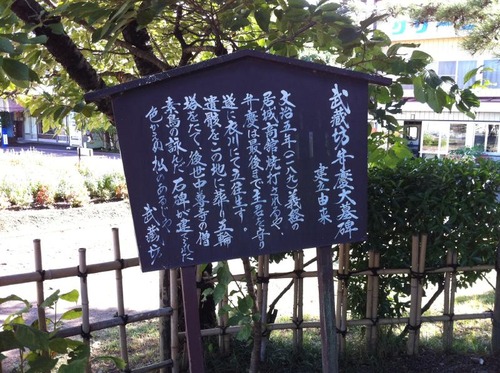 武蔵坊弁慶大墓碑
建立由来
文治五年(一一八九)義経の
居城高館焼打されるや
弁慶は最後まで主君を守り
遂に衣川にて立往生す。
遺骸をこの地に葬り五輪
塔をたて、後世中尊寺の僧
素鳥の詠んだ石碑が建てられた
色かえぬ松のあるじや
武蔵坊